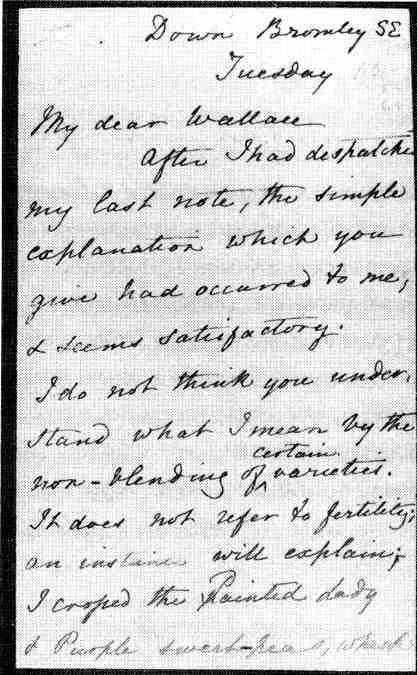 Down Bromley SE
Tuesday
My dear Wallace
After I had despatched
my last note, the simple
explanation which you
give had occurred to me,
& seems satisfactory.
I do not think you under-
stand what I mean by the
certain
non-blending of varieties.
It does not refer to fertility;
an instance will explain;
I croped the Painted Lady
& Purple sweet-peas, which